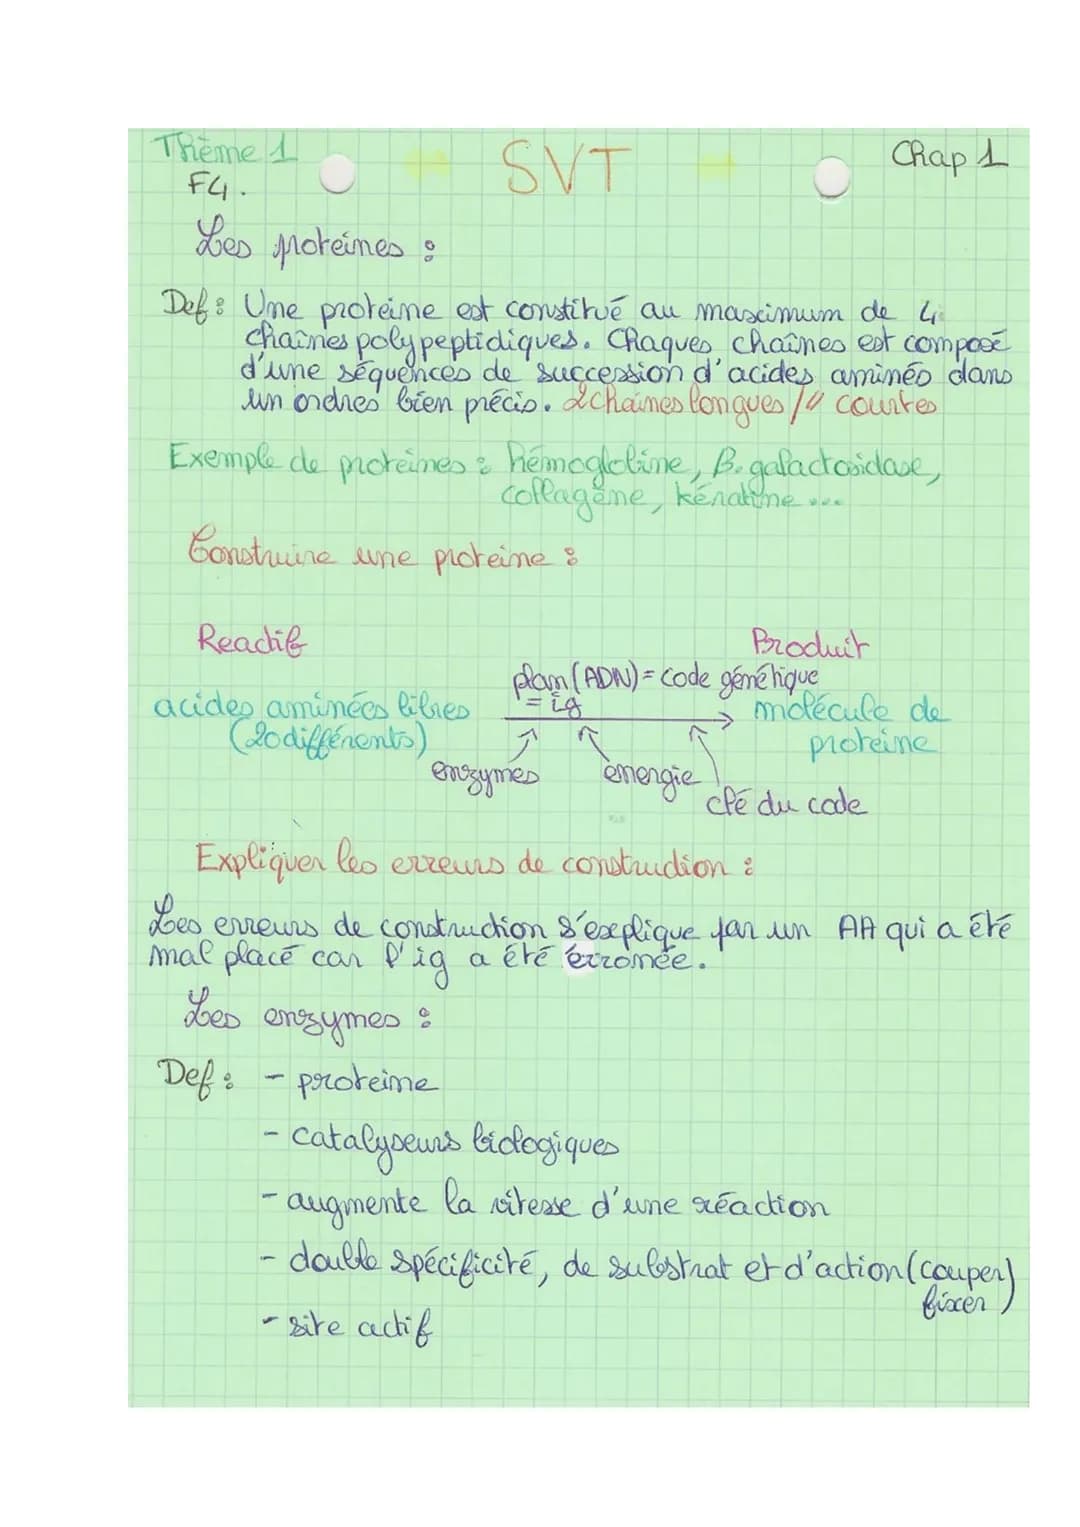 Thème 1 SVT Chap 1
F4.
Les proteines :
Def : Une proteine est constitué au maximum de 4
chaînes polypeptidiques. Chaques chaînes est composé
d'une séquences de succession d'acides aminés dans
un ordres bien précis. 2 chaines longues / " courtes
Exemple de proteines : hémoglobine, B.galactosidase,
collagène, kératine ...
Construire une proteine :
Reactif Produit
plan (ADN) = code génétique
= ig
acides aminées libres molécule de
(20 différents) proteine
enzymes énergie
clé du code
Expliquer les erreurs de construction :
Les erreurs de construction s'explique par un AA qui a été
mal placé car l'ig a été érronée.
Les enzymes :
Def : - proteine
- catalyseurs biologiques
- augmente la vitesse d'une réaction
- double spécificité, de substrat et d'action (couper)
fixer )
- site actif